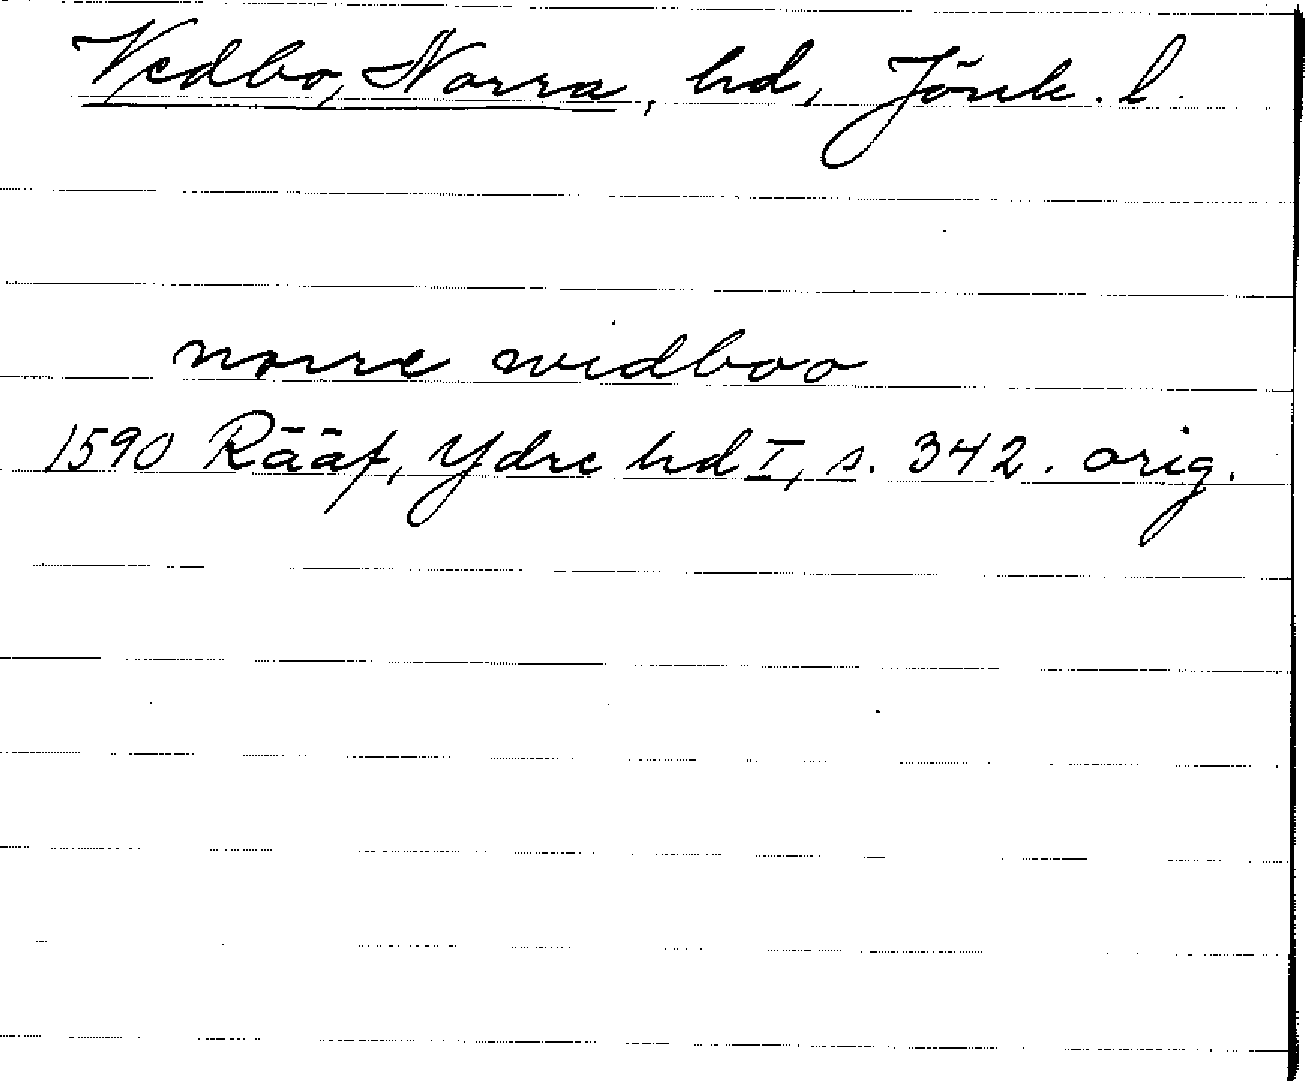 Vedbo, Norra, hd, Jönk. l.
norre widboo
1590 Rääf, Ydre hd I, s. 342. orig.